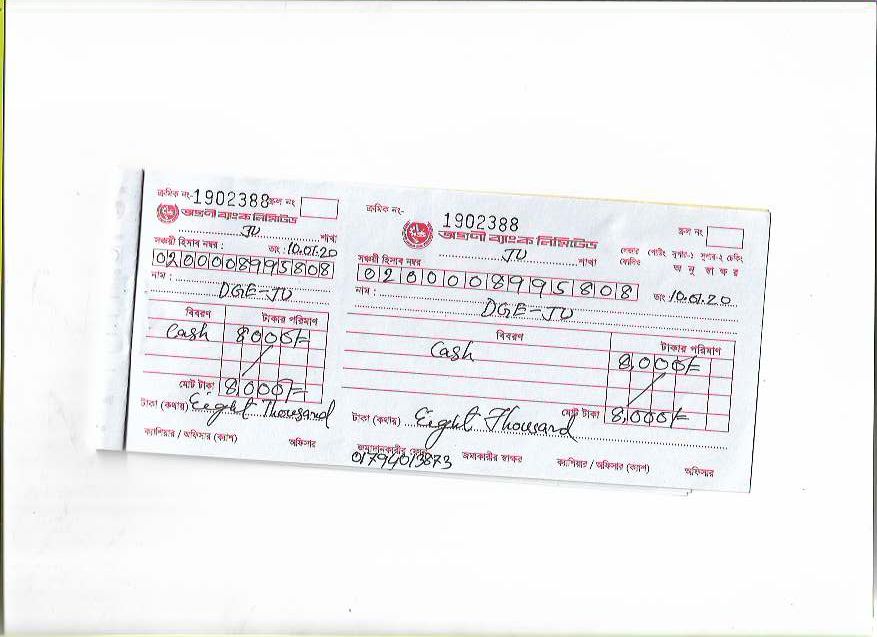 ক্রমিক নং- 1902388 স্ক্রল নং
অগ্রণী ব্যাংক লিমিটেড
JU শাখা
সঞ্চয়ী হিসাব নম্বর : তাং : 10.01.20
0200008995808
নাম :
DGE-JU
বিবরণ টাকার পরিমাণ
Cash 8000/=
মোট টাকা 8,000/=
টাকা (কথায়) Eight Thousand
ক্যাশিয়ার / অফিসার (ক্যাশ) অফিসার
ক্রমিক নং- 1902388 স্ক্রল নং
অগ্রণী ব্যাংক লিমিটেড
JU শাখা
লেজার পোস্টিং সুপার-১ সুপার-২ চেকিং
ফোলিও অ নু স্বা ক্ষ র
সঞ্চয়ী হিসাব নম্বর
0200008995808 তাং : 10.01.20
নাম :
DGE-JU
বিবরণ টাকার পরিমাণ
Cash 8,000/=
মোট টাকা 8,000/=
টাকা (কথায়) Eight Thousand
জমাদানকারীর ফোন
01794013873 জমাকারীর স্বাক্ষর ক্যাশিয়ার / অফিসার (ক্যাশ) অফিসার